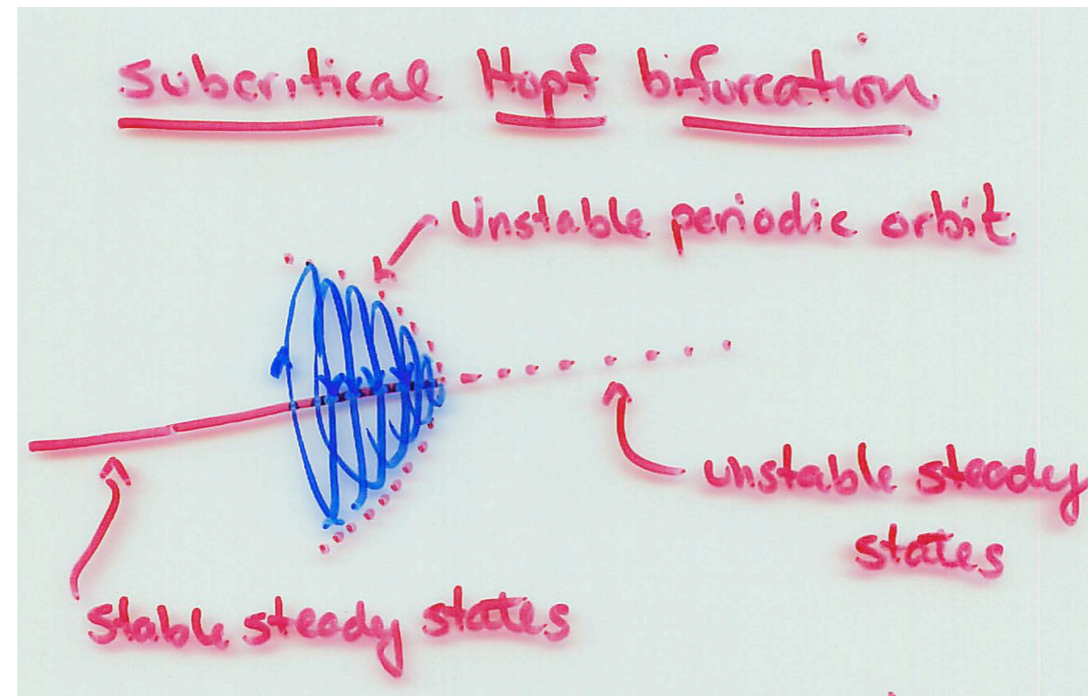 Subcritical Hopf bifurcation
Unstable periodic orbit
unstable steady
states
stable steady states